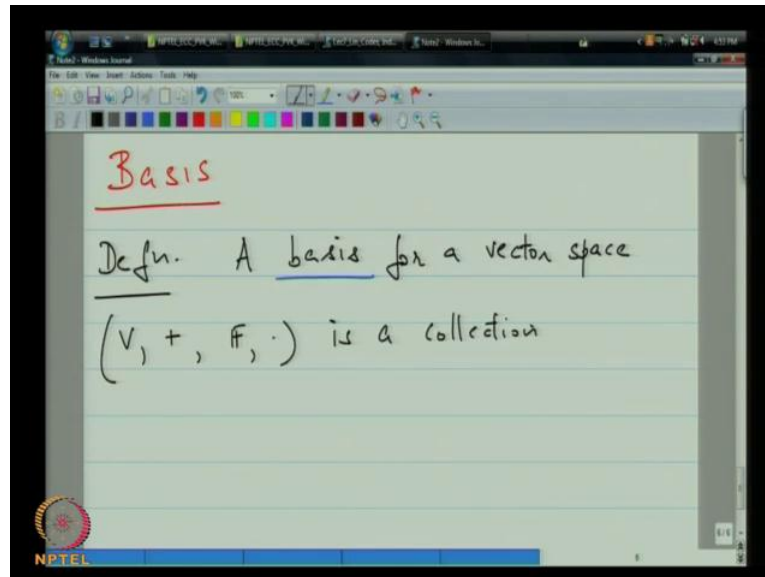 Note2 - Windows Journal
File Edit View Insert Actions Tools Help
Basis
Defn. A basis for a vector space
(V, +, F, ·) is a collection
NPTEL